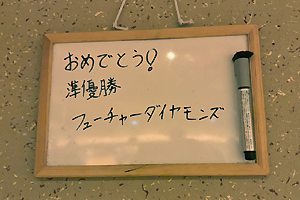 おめでとう!
準優勝
フューチャーダイヤモンズ